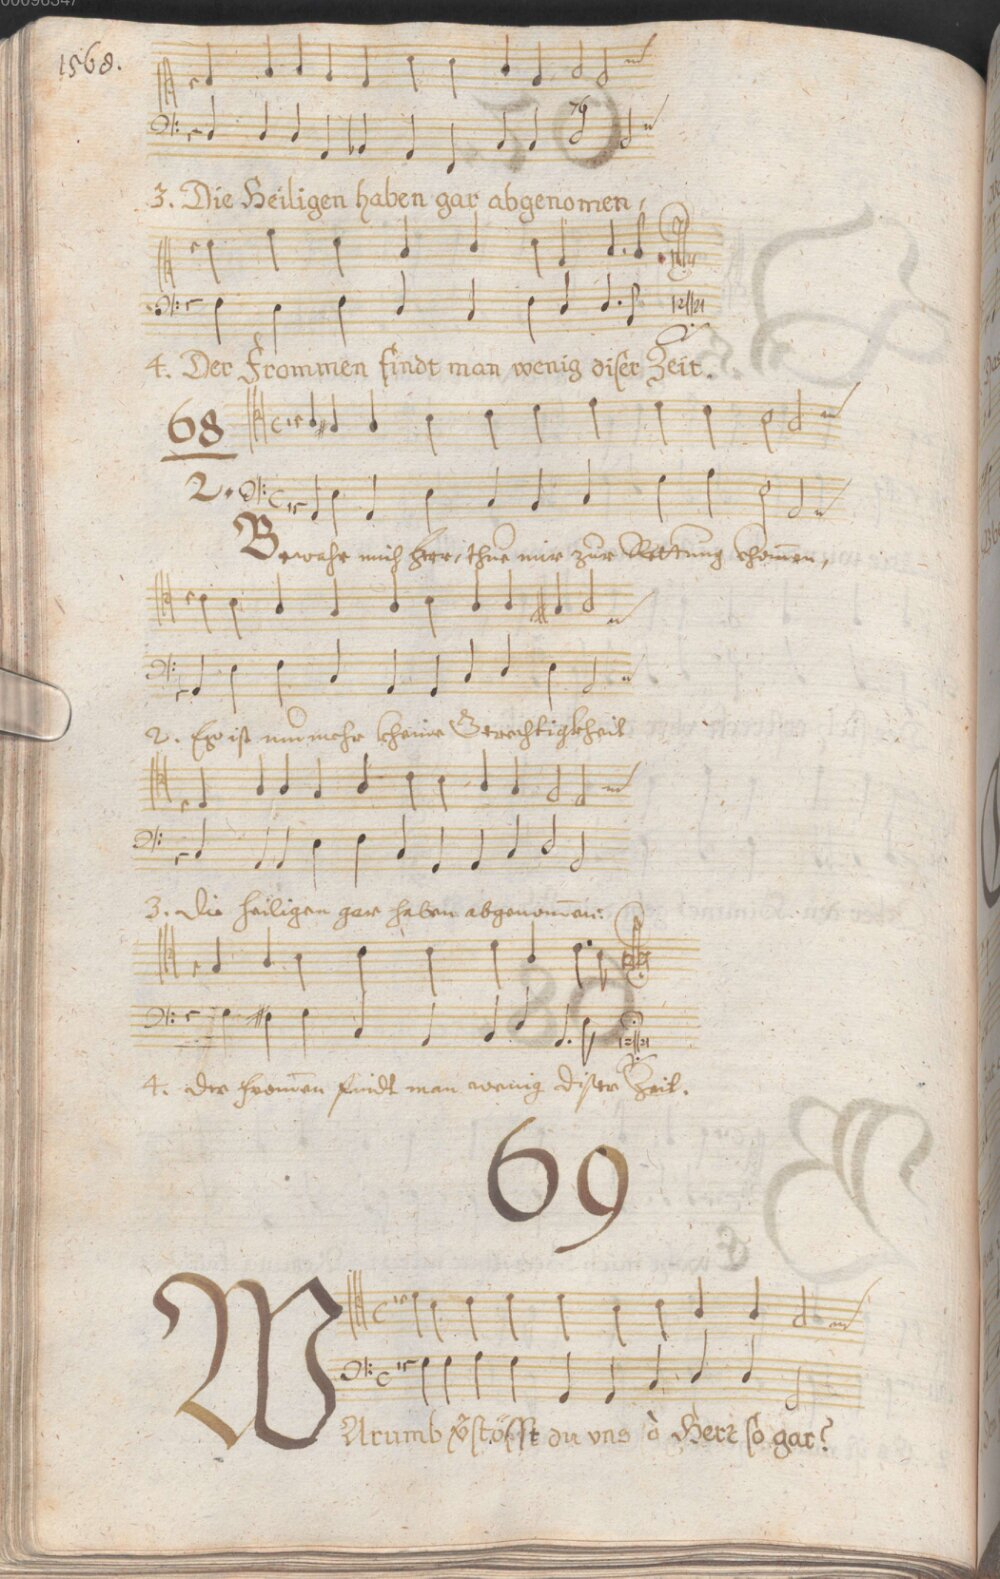 00096347
1568.
76
3. Die Heiligen haben gar abgenomen,
4. Der Frommen findt man wenig diser Zeit.
68
2.
Bewahr mich Herr, thue mir zur Rettung khom̄en,
2. Es ist nun mehr kheine Gerechtigkheit
3. Die heiligen gar haben abgenom̄en:
4. der from̄en findt man wenig diser Zeit.
69
WArumb v̈stösst du vns ò Herr so gar?